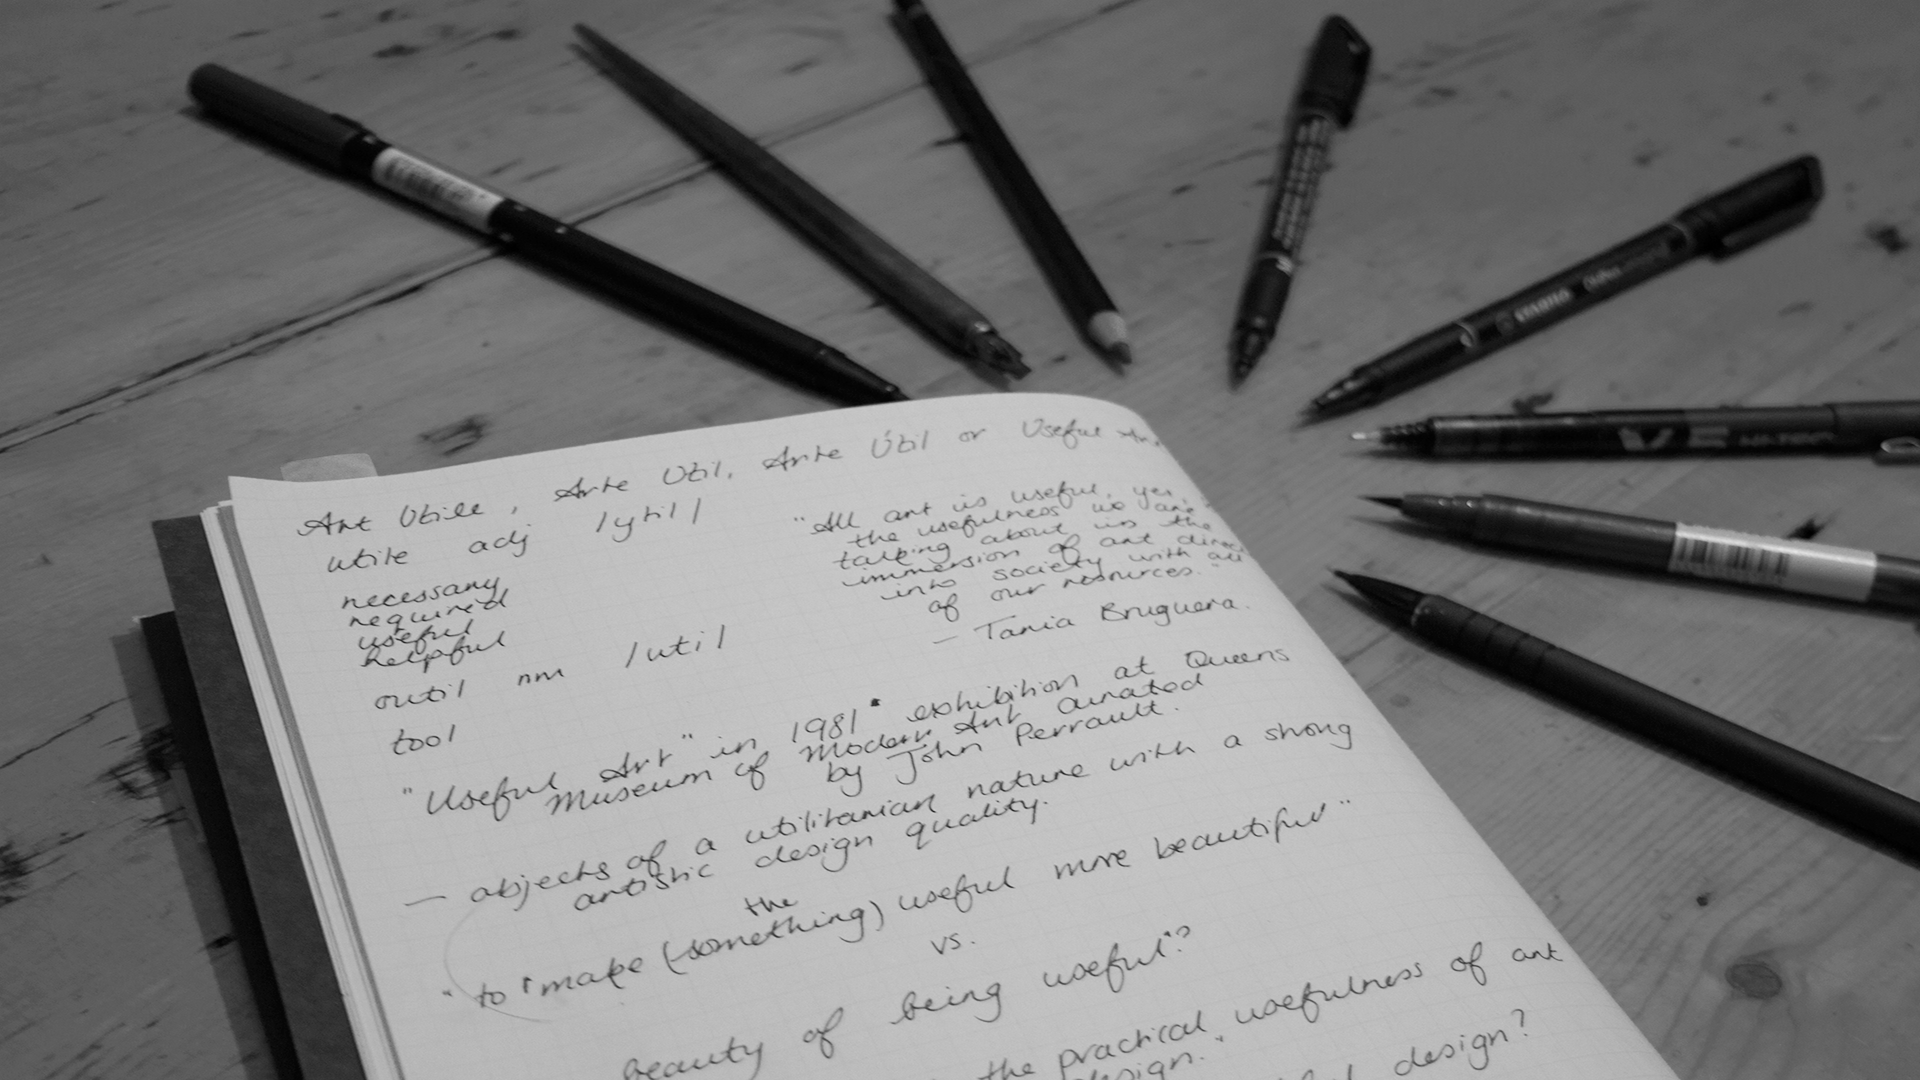 Art Utile, Arte Util, Arte Útil or Useful Art
utile adj /ytil/
necessary
required
useful
helpful
outil nm /util/
tool
"All art is useful, yes,
the usefulness we are
talking about is the
immersion of art
into society with all
of our resources."
- Tania Bruguera.
"Useful Art" in 1981 exhibition at Queens
Museum of Modern Art curated
by John Perrault.
— objects of a utilitarian nature with a strong
artistic design quality.
the
" to "make (something) useful more beautiful"
vs.
beauty of being useful"?
the practical usefulness of art
design."
design?
STABILO
V5